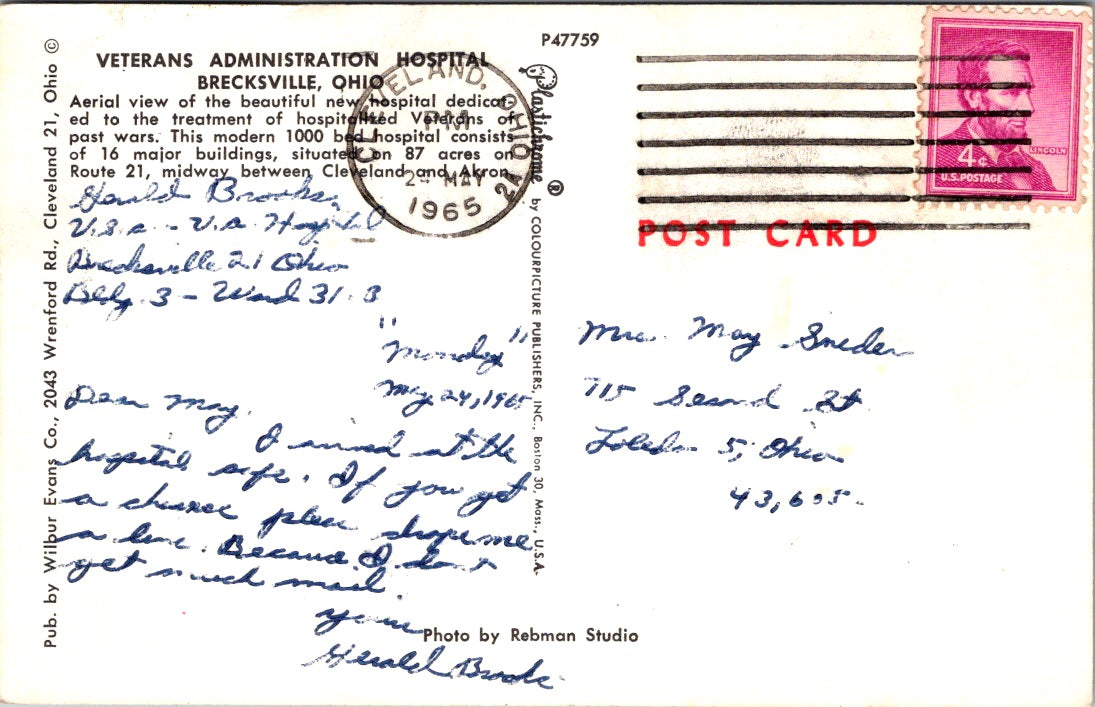 P47759
VETERANS ADMINISTRATION HOSPITAL
BRECKSVILLE, OHIO
Aerial view of the beautiful new hospital dedicat-
ed to the treatment of hospitalized Veterans of
past wars. This modern 1000 bed hospital consists
of 16 major buildings, situated on 87 acres on
Route 21, midway between Cleveland and Akron.
Gerald Brooks.
U.S.A - V.A. Hospital
Brecksville 21 Ohio
Bldg. 3 - Ward 31-B
"Monday"
May 24, 1965
Dear May.
I arrived at the
hospital safe. If you get
a chance please drop me
a line. Because I don't
get much mail.
Yours
Gerald Brooks
Photo by Rebman Studio
Pub. by Wilbur Evans Co., 2043 Wrenford Rd., Cleveland 21, Ohio ©
Plastichrome ® by COLOURPICTURE PUBLISHERS, INC., Boston 30, Mass., U.S.A.
CLEVELAND, OHIO
PM
24 MAY
1965
LINCOLN
4¢
U.S. POSTAGE
POST CARD
Mrs. May Sneder
715 Second St
Toledo 5, Ohio
43,605.